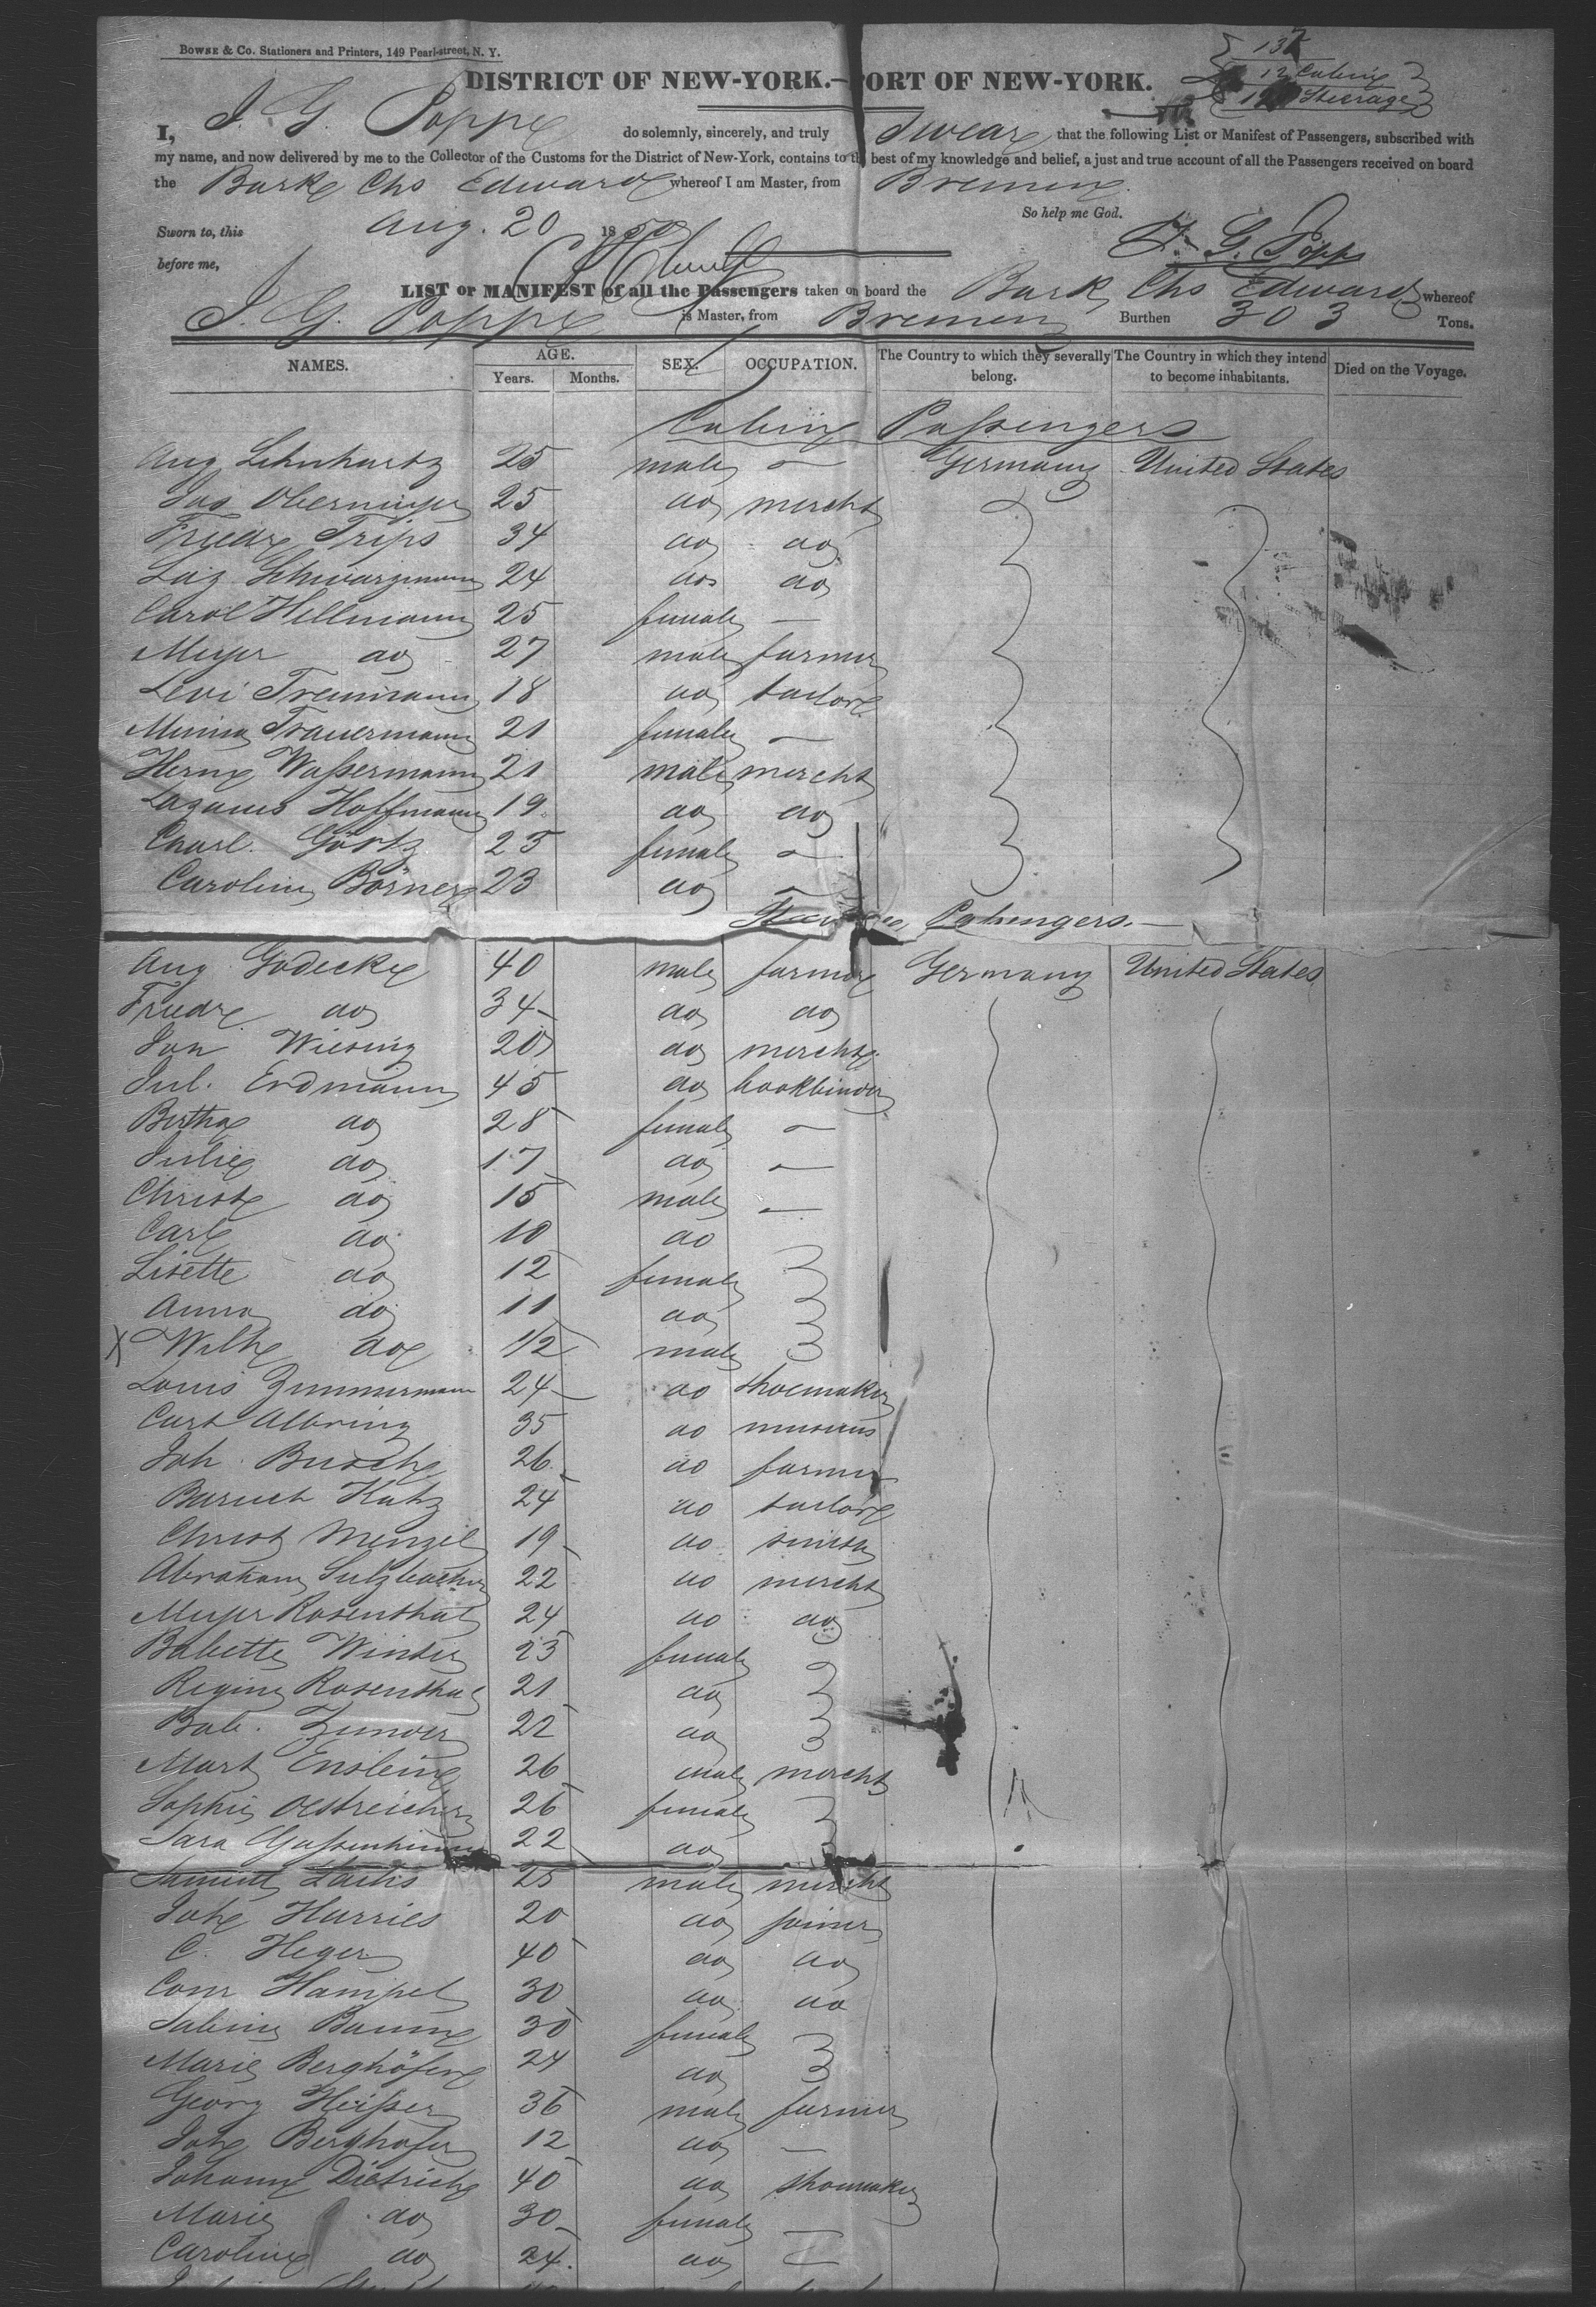 BOWNE & Co. Stationers and Printers, 149 Pearl-street, N. Y.
12 Cabin
Steerage
DISTRICT OF NEW-YORK.—PORT OF NEW-YORK.
I, J. G. Poppe do solemnly, sincerely, and truly Swear that the following List or Manifest of Passengers, subscribed with
my name, and now delivered by me to the Collector of the Customs for the District of New-York, contains to the best of my knowledge and belief, a just and true account of all the Passengers received on board
the Bark Chs Edward whereof I am Master, from Bremen
So help me God.
Sworn to, this Aug. 20 1850
before me, J. G. Popp
LIST or MANIFEST of all the Passengers taken on board the Bark Chs Edward whereof
J. G. Poppe is Master, from Bremen Burthen 303 Tons.
NAMES. AGE. SEX. OCCUPATION. The Country to which they severally belong. The Country in which they intend to become inhabitants. Died on the Voyage.
Years. Months.
Cabin Passengers
Aug Lehnhartz 25 male — Germany United States
Jas Obermeyer 25 do mercht
Friedr Trips 34 do do
Laz Schwarzmann 24 do do
Carol Hellmann 25 female —
Meyer do 27 male farmer
Levi Treumann 18 do tailor
Minna Trauermann 21 female —
Herm Waßermann 21 male mercht
Lazarus Hoffmann 19 do do
Charl. Görtz 25 female —
Caroline Börner 23 do —
Passengers.—
Aug Godecke 40 male farmer Germany United States
Friedr do 34 do do
Jon Wiesing 20 do mercht
Jul. Erdmann 45 do bookbinder
Bertha do 28 female —
Julie do 17 do —
Christ do 15 male —
Carl do 10 do
Lisette do 12 female
Anna do 11 do
X Wilh do 1/2 male
Louis Zimmermann 24 do shoemaker
Curt Albring 35 do musicus
Joh. Busch 26 do farmer
Baruch Katz 24 do tailor
Christ Menzel 19 do smith
Abraham Sulzbacher 22 do mercht
Meyer Rosenthal 24 do do
Babette Winter 23 female
Regine Rosenthal 21 do
Bab. Zunder 22 do
Mart Enslein 26 male mercht
Sophie Oestreicher 26 female
Sara 22 do
Samuel 25 male mercht
Joh Harries 20 do joiner
C. Heger 40 do do
Conr Hampel 30 do do
Sabine Baum 30 female
Marie Berghöfer 24 do
Georg Heißer 36 male farmer
Joh Berghöfer 12 do —
Johann Dietrich 40 do shoemaker
Marie do 30 female —
Caroline do 24 do —